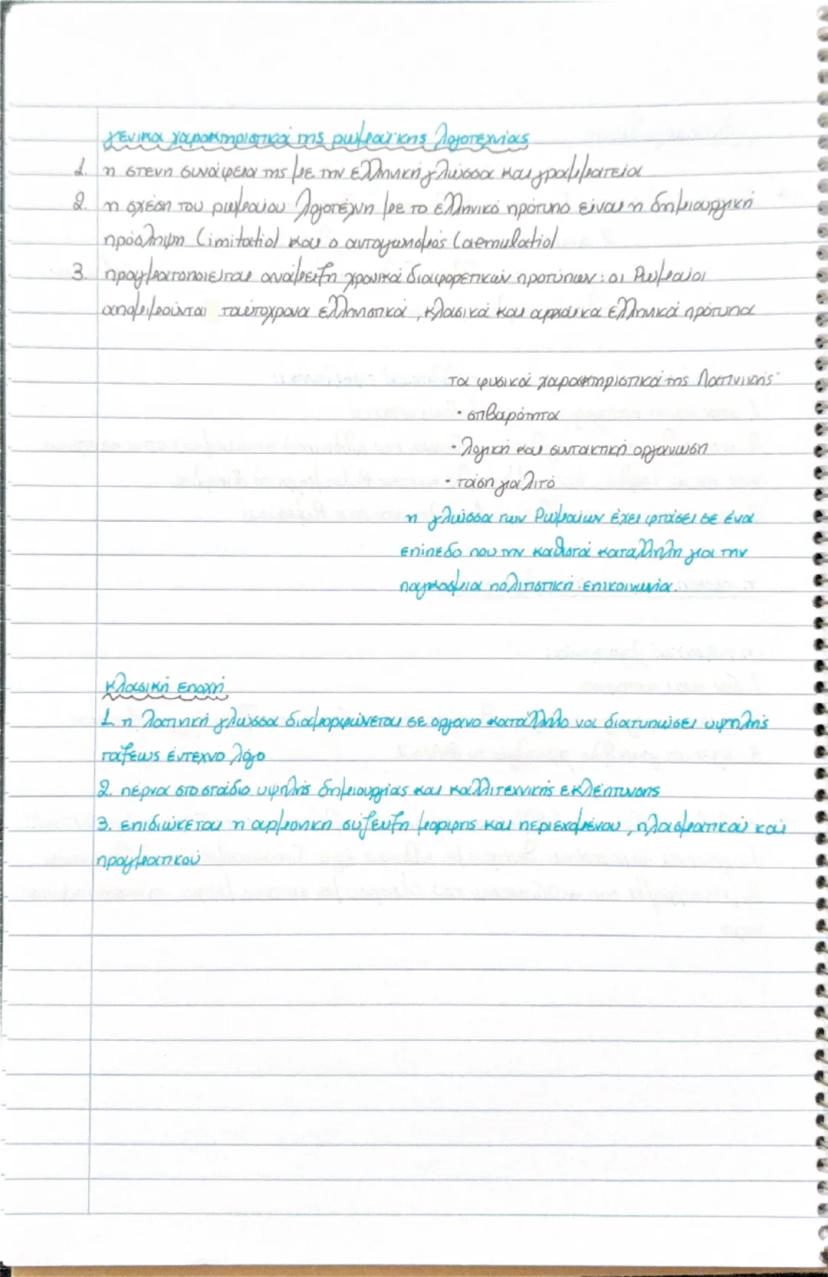 γενικα χαρακτηριστικά της ρωμαϊκης λογοτεχνίας
1. η στενη συνάφεια της με την ελληνική γλώσσα και γραμματεία
2. η σχέση του ρωμαίου λογοτέχνη με το ελληνικό πρότυπο είναι η δημιουργική
πρόσληψη (imitatio) και ο ανταγωνισμός (aemulatio)
3. πραγματοποιείται ανάμειξη χρονικά διαφορετικών προτύπων: οι Ρωμαίοι
απομιμούνται ταυτόχρονα ελληνιστικά, κλασικά και αρχαικα ελληνικά πρότυπα
τα φυσικά χαρακτηριστικά της Λατινικής
• στιβαρότητα
• λογική και συντακτική οργάνωση
• τάση για λιτό
η γλώσσα των Ρωμαίων έχει φτάσει σε ένα
επίπεδο που την καθιστά κατάλληλη για την
παγκοσμια πολιτιστική επικοινωνία.
Κλασική εποχή
1. η λατινική γλώσσα διαμορφώνεται σε οργανο κατάλληλο να διατυπώσει υψηλής
τάξεως έντεχνο λόγο
2. πέρνα στο στάδιο υψηλής δημιουργίας και καλλιτεχνικής εκλέπτυνσης
3. επιδιώκεται η αρμονική σύζευξη μορφης και περιεχομένου, πλασματικού και
πραγματικού